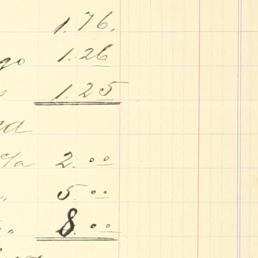 1.76.
go 1.26
1.25
2.00
5.00
8.00